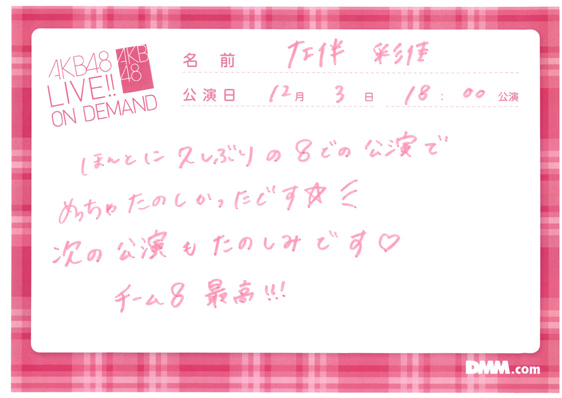 AKB48
LIVE!!
ON DEMAND
AKB
48
名前 左伴 彩佳
公演日 12月 3日 18:00 公演
ほんとに久しぶりの8での公演で
めっちゃたのしかったです☆
次の公演もたのしみです♡
チーム8 最高!!!
DMM.com